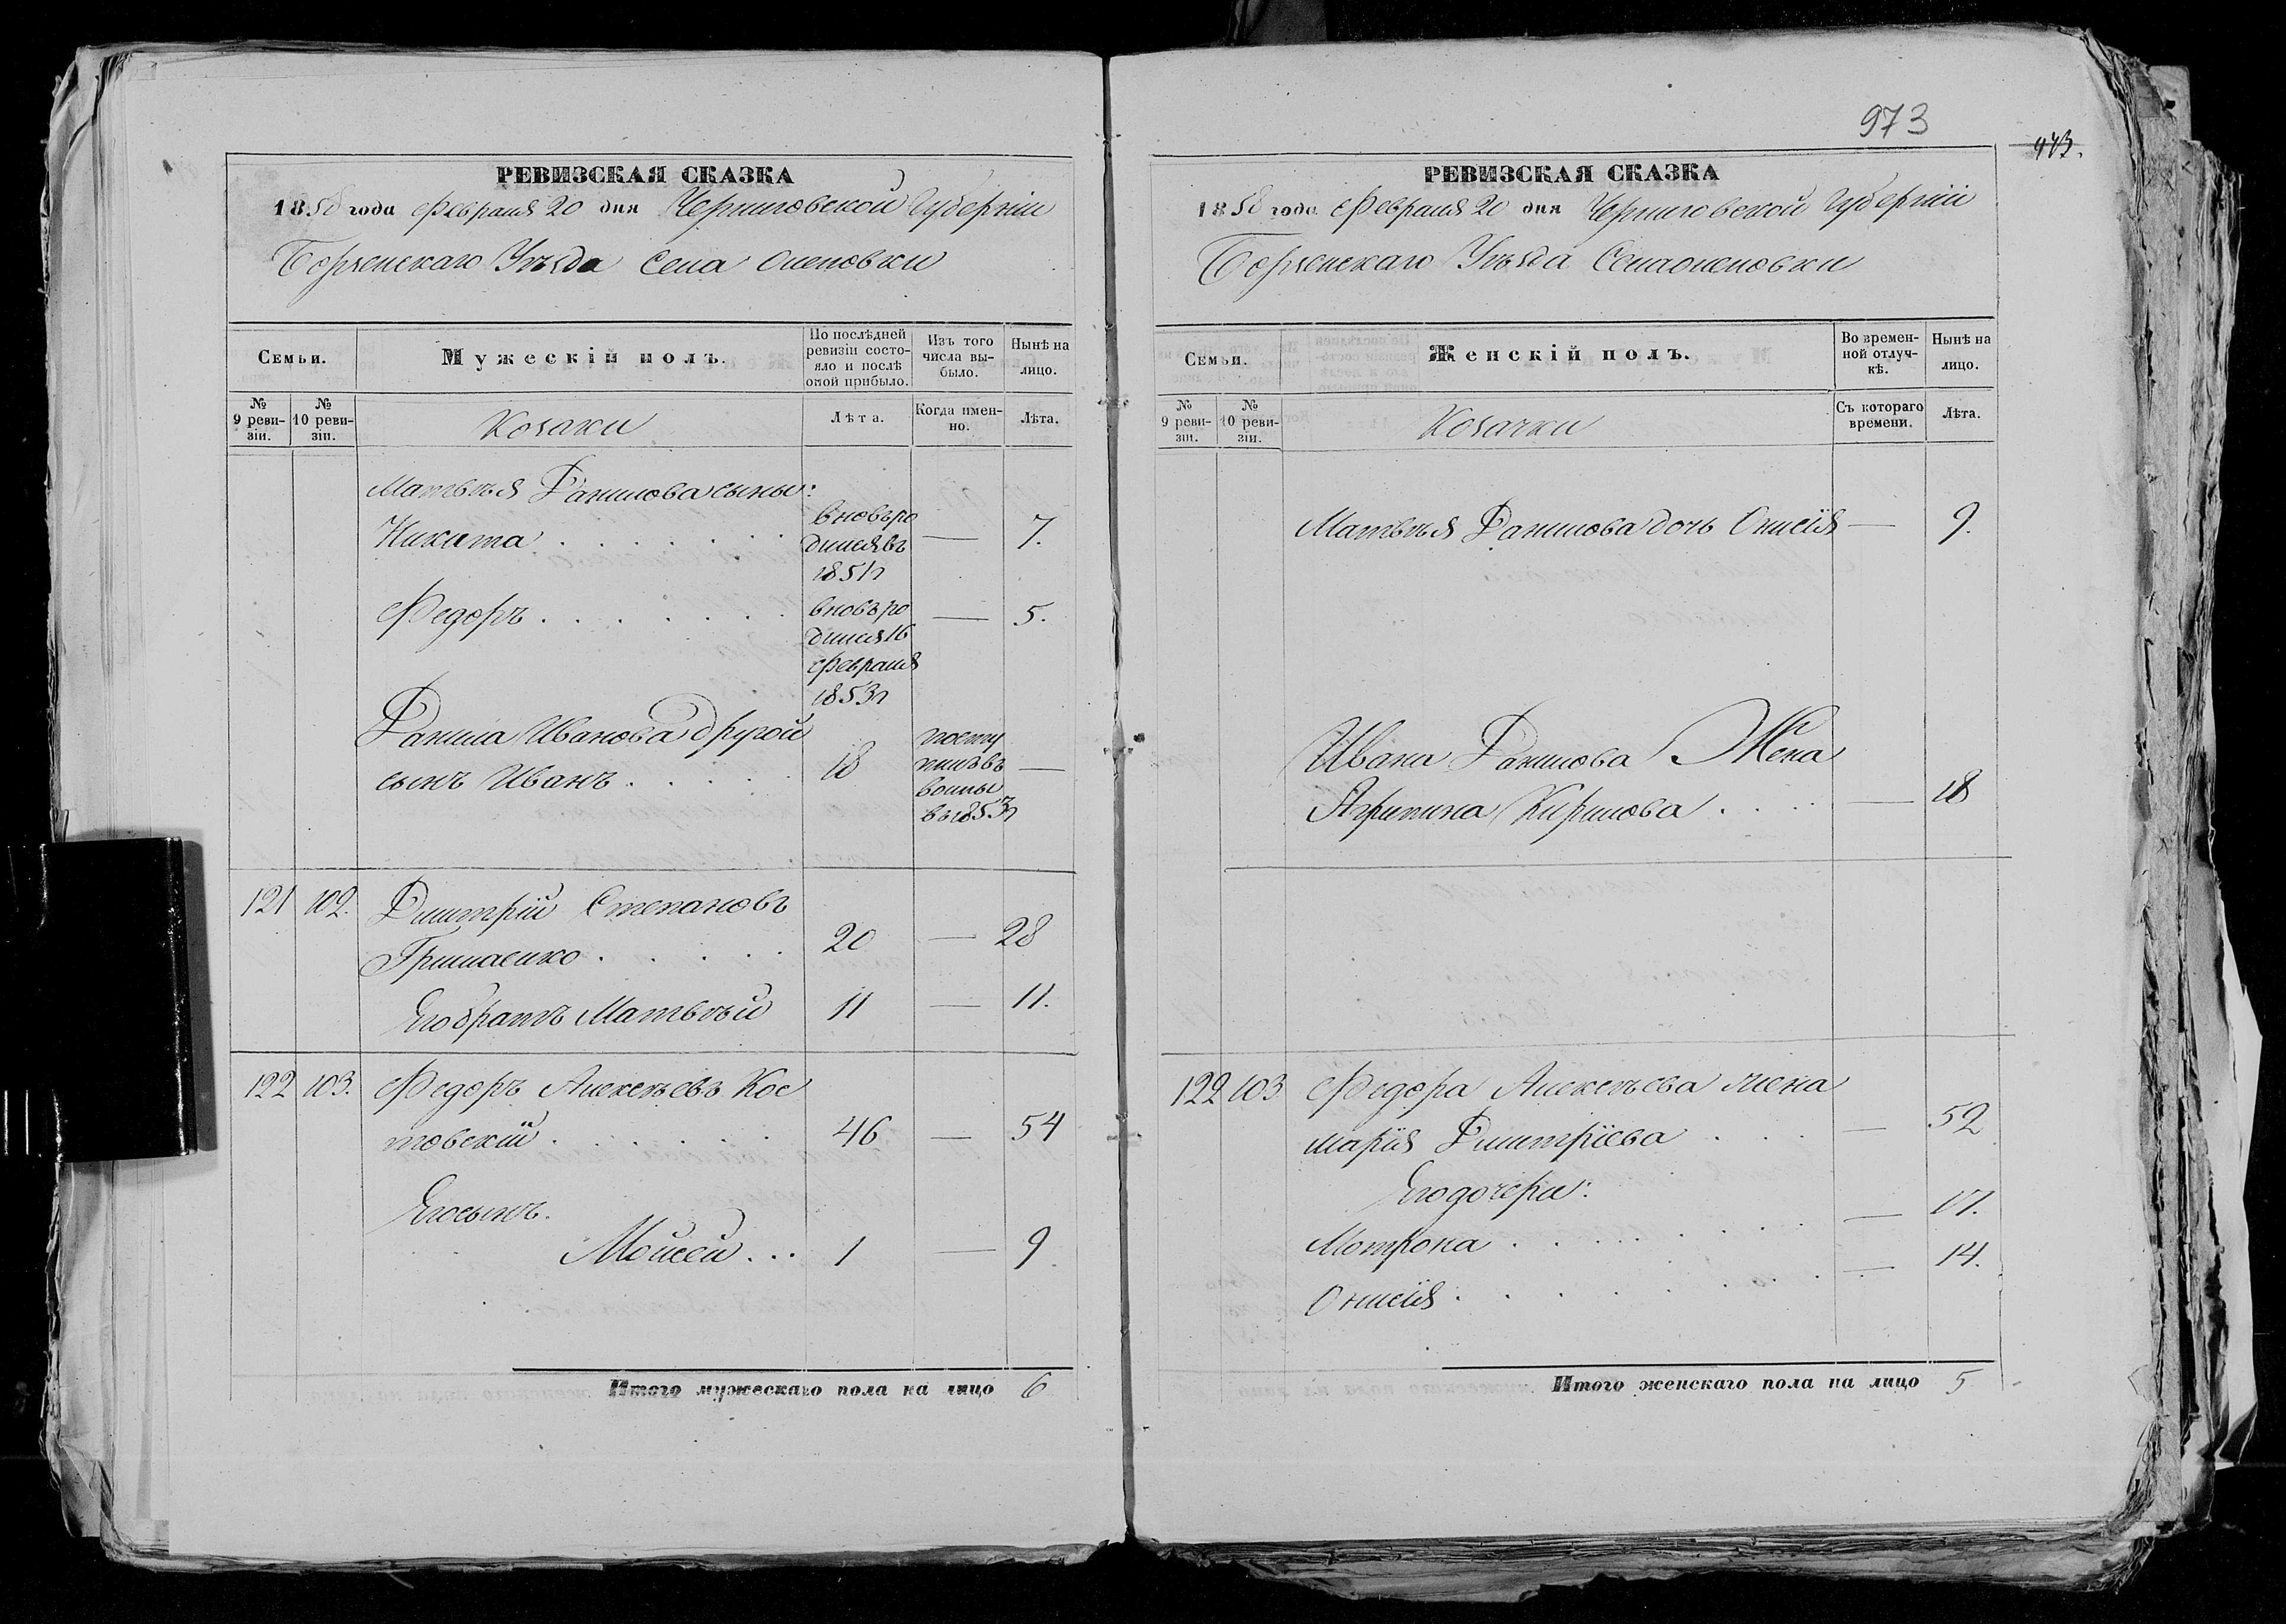 РЕВИЗСКАЯ СКАЗКА
1858 года Февраля 20 дня Черниговской Губерніи
Борзенскаго Уѣзда Села Оленовки
Семьи.
Мужескій полъ.
По послѣдней ревизіи состояло и послѣ оной прибыло.
Изъ того числа выбыло.
Нынѣ на лицо.
№ 9 ревизіи.
№ 10 ревизіи.
Козаки
Лѣта.
Когда именно.
Лѣта.
Матвѣя Данилова сыны:
Никита . . . . . . . вновь ро
дился въ — 7.
1851 г
Федоръ . . . . . . . вновь ро — 5.
дился 16
Февраля
1853 г
Данила Иванова другой
сынъ Иванъ . . . . . 18 посту
пилъ въ —
воины
въ 1853 г
121 102. Дмитрій Степановъ
Гришаенко . . . . . 20 — 28
Его братъ Матвѣй 11 — 11.
122 103. Федоръ Алексѣевъ Кос
товскій . . . . . . 46 — 54
Его сынъ.
Мойсей . . . 1 — 9.
Итого мужескаго пола на лицо 6
973
443.
РЕВИЗСКАЯ СКАЗКА
1858 года Февраля 20 дня Черниговской Губерніи
Борзенскаго Уѣзда Села Оленовки
Семьи.
Женскій полъ.
Во временной отлучкѣ.
Нынѣ на лицо.
№ 9 ревизіи.
№ 10 ревизіи.
Козачки
Съ котораго времени.
Лѣта.
Матвѣя Данилова дочь Онисія — 9.
Ивана Данилова Жена
Агрипина Кирилова . . . . — 18
122 103 Федора Алексѣева жена
Марія Дмитріева . . . — 52
Его дочери:
Мотрона . . . . . . . — 17.
Онисія . . . . . . . — 14.
Итого женскаго пола на лицо 5